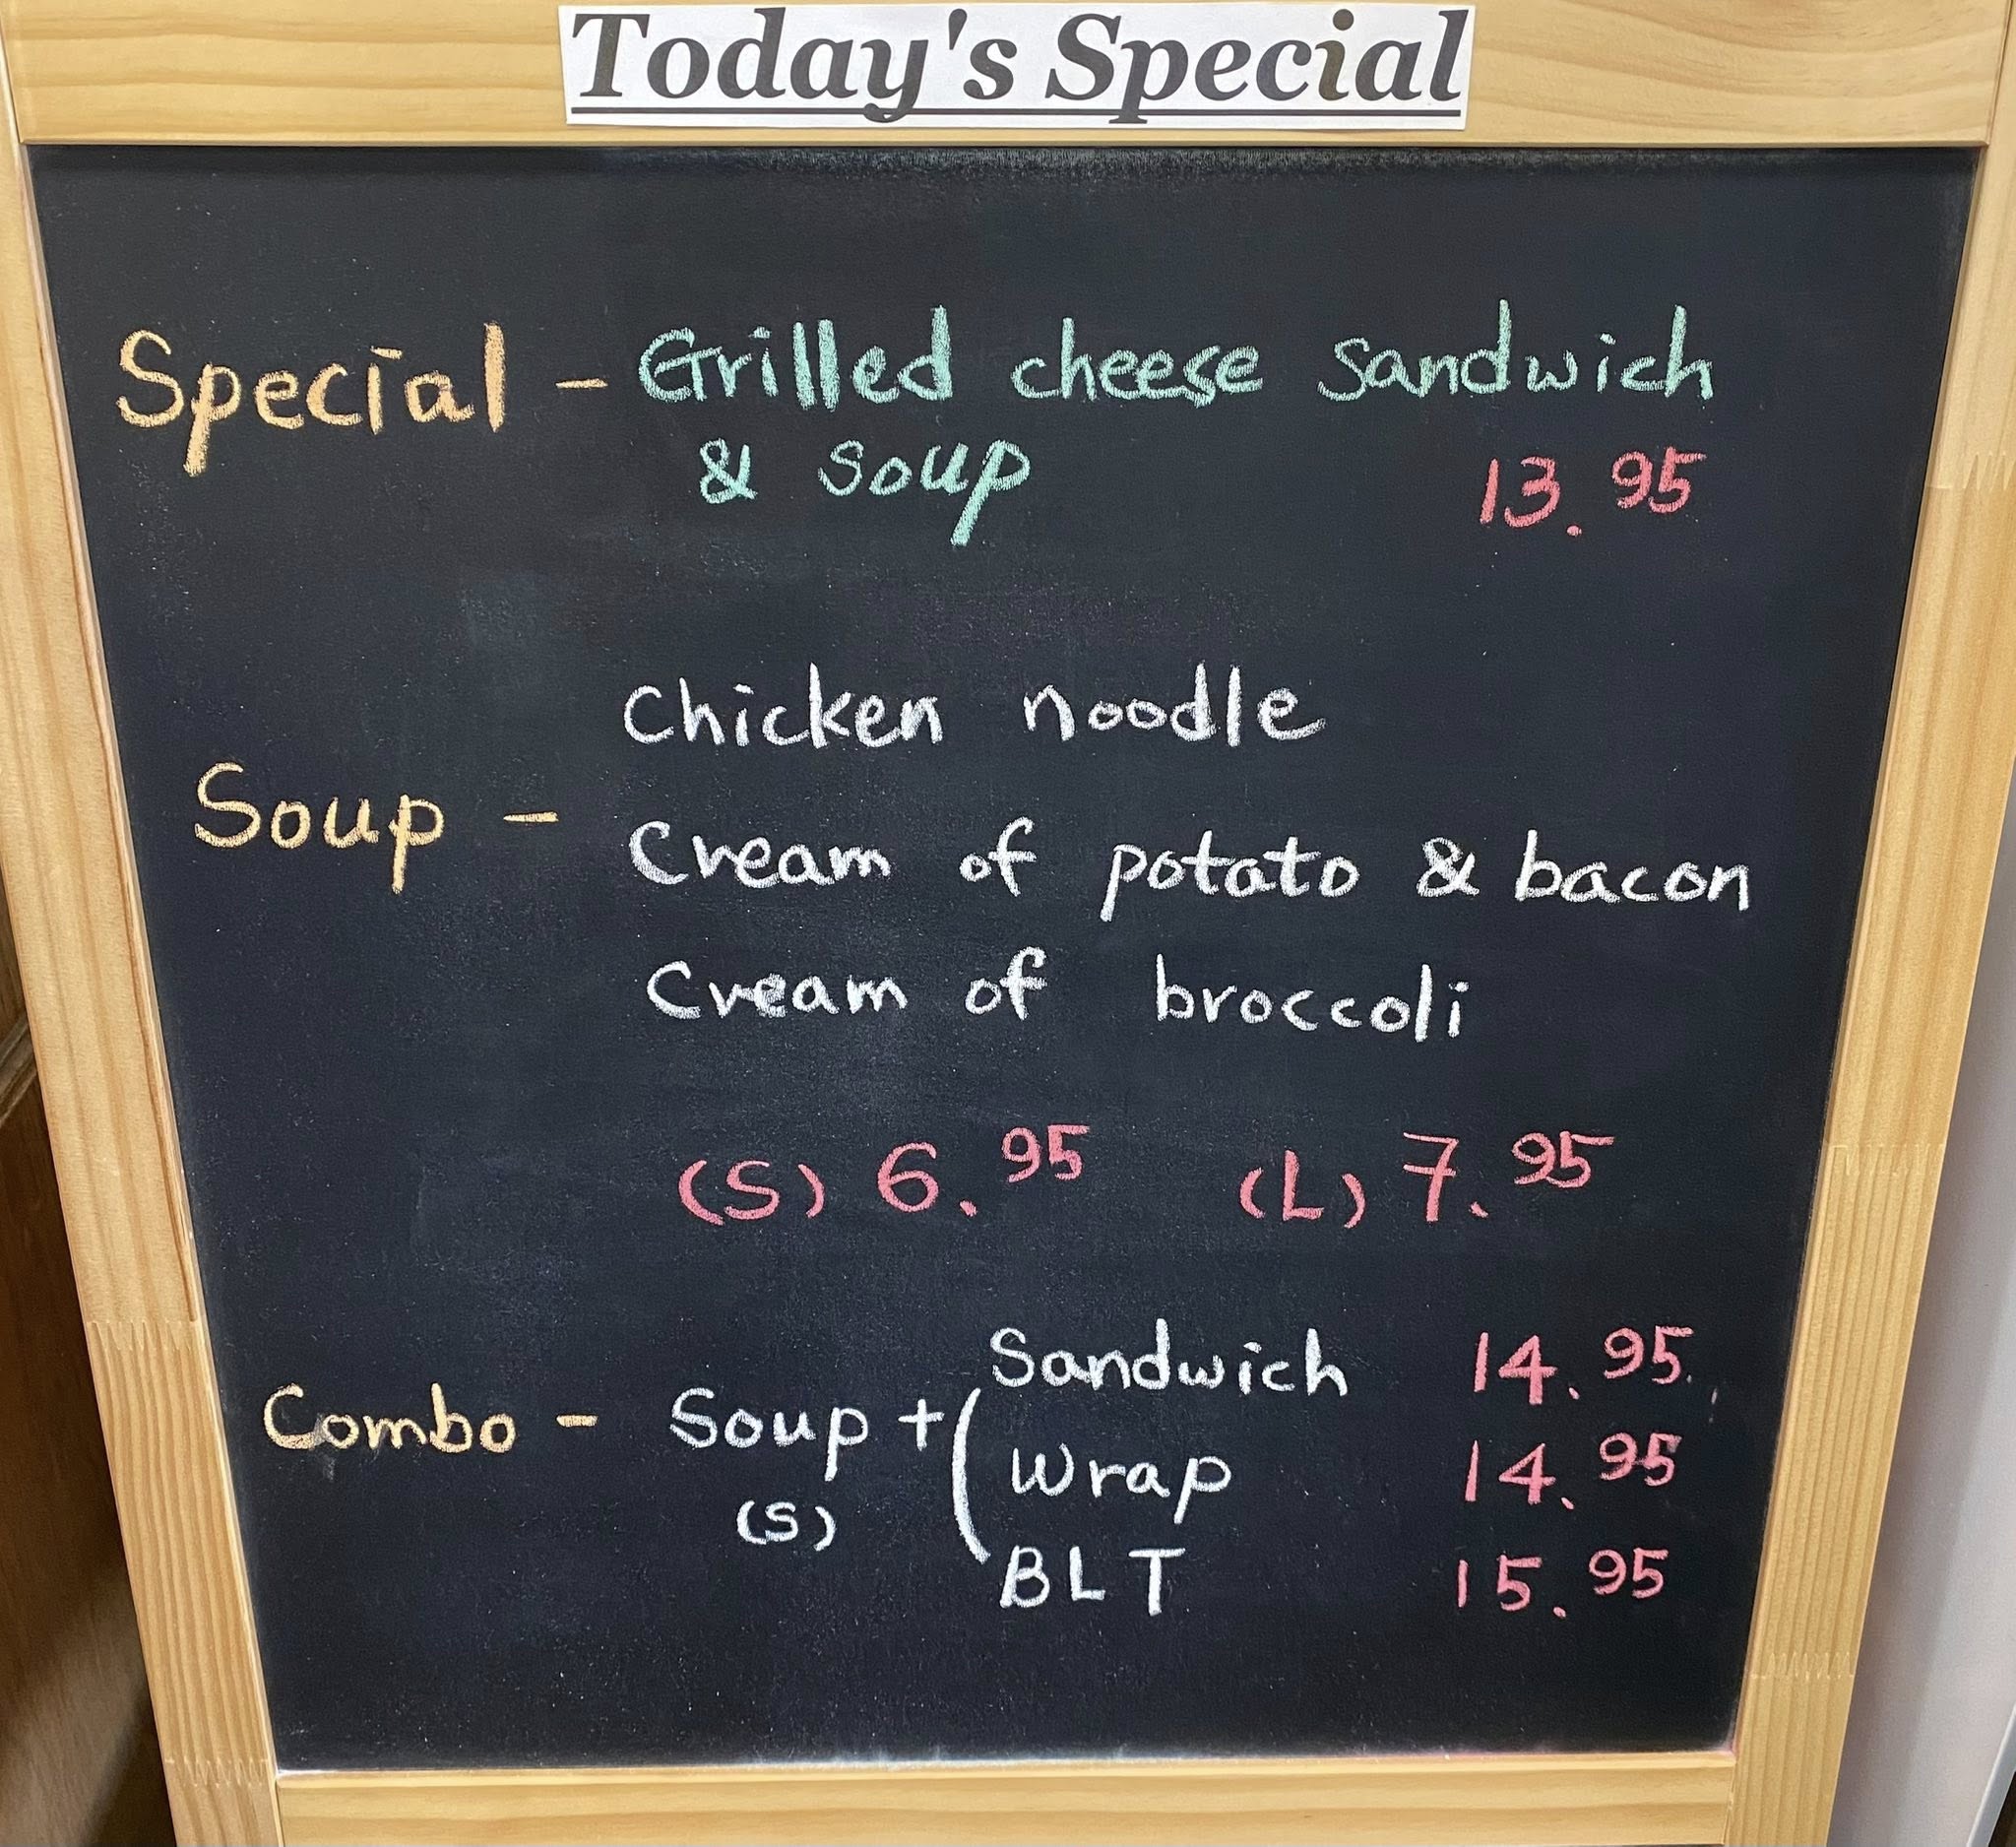 Today's Special
Special - Grilled cheese Sandwich
& Soup 13.95
Chicken noodle
Soup -
Cream of potato & bacon
Cream of broccoli
(S) 6.95 (L) 7.95
Sandwich 14.95
Combo - Soup + (
Wrap 14.95
(S)
BLT 15.95